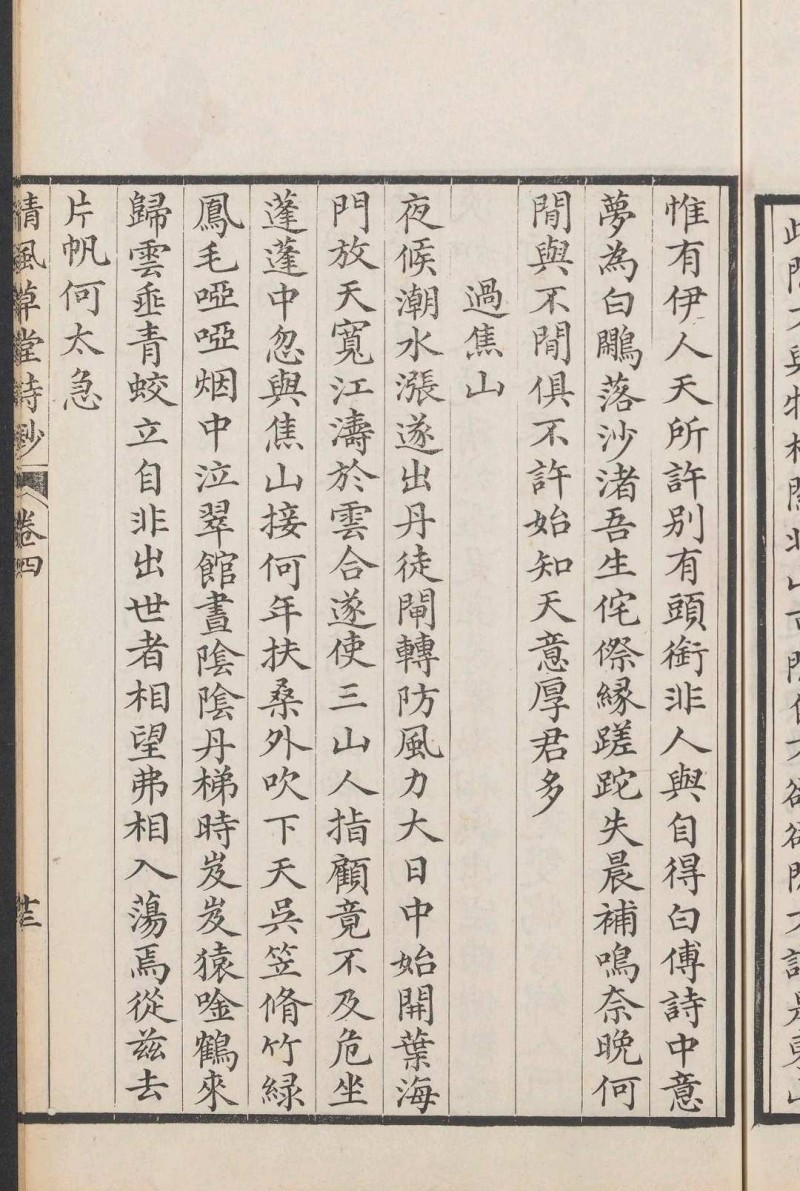 惟有伊人天所許别有頭銜非人與自得白傅詩中意
夢為白鷳落沙渚吾生侘傺緣蹉跎失晨補鳴奈晚何
閒與不閒俱不許始知天意厚君多
過焦山
夜候潮水漲遂出丹徒閘轉防風力大日中始開葉海
門放天寬江濤於雲合遂使三山人指顧竟不及危坐
蓬蓬中忽與焦山接何年扶桑外吹下天吳笠脩竹緑
鳳毛啞啞烟中泣翠館晝陰陰丹梯時岌岌猿唫鶴來
歸雲垂青蛟立自非出世者相望弗相入蕩焉從兹去
片帆何太急
清風草堂詩鈔 卷四